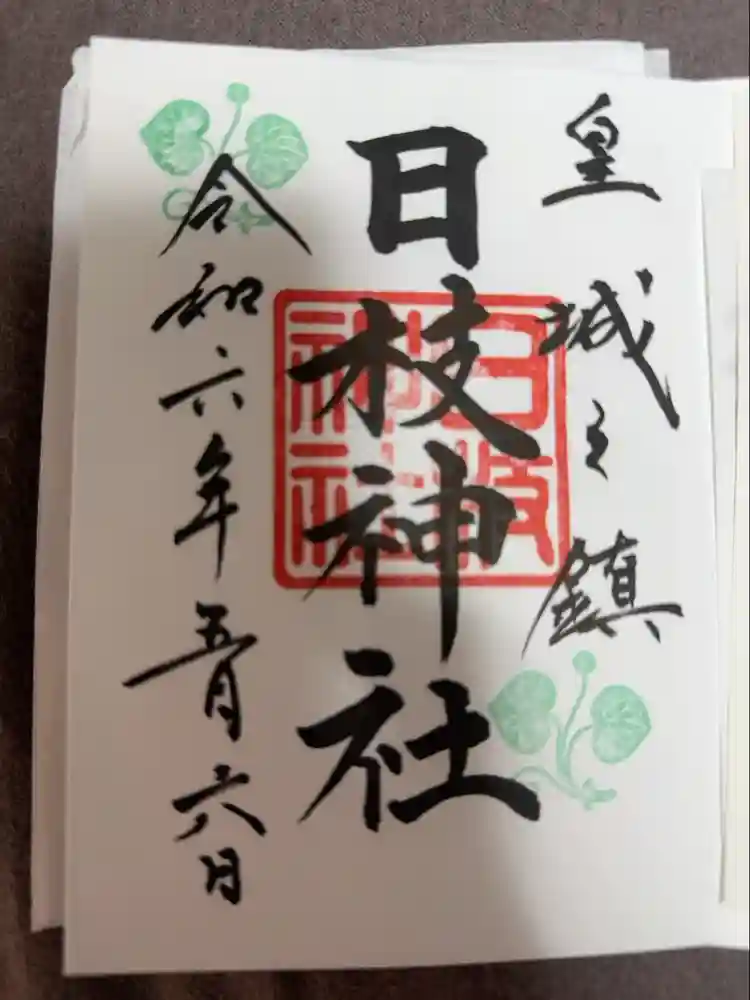 皇城之鎮
日枝神社
日枝
神社
令和六年五月六日